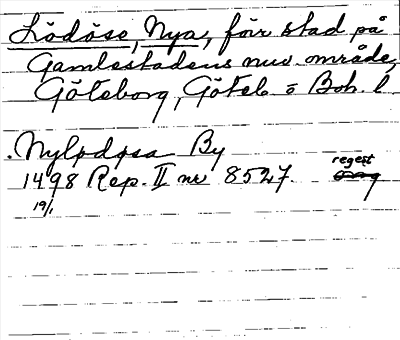 Lödöse, Nya, förr stad på
Gamlestadens nuv. område,
Göteborg, Göteb o Boh. l
. Nylødøsa By
1498 Rep. II nr 8527. regest
19/1